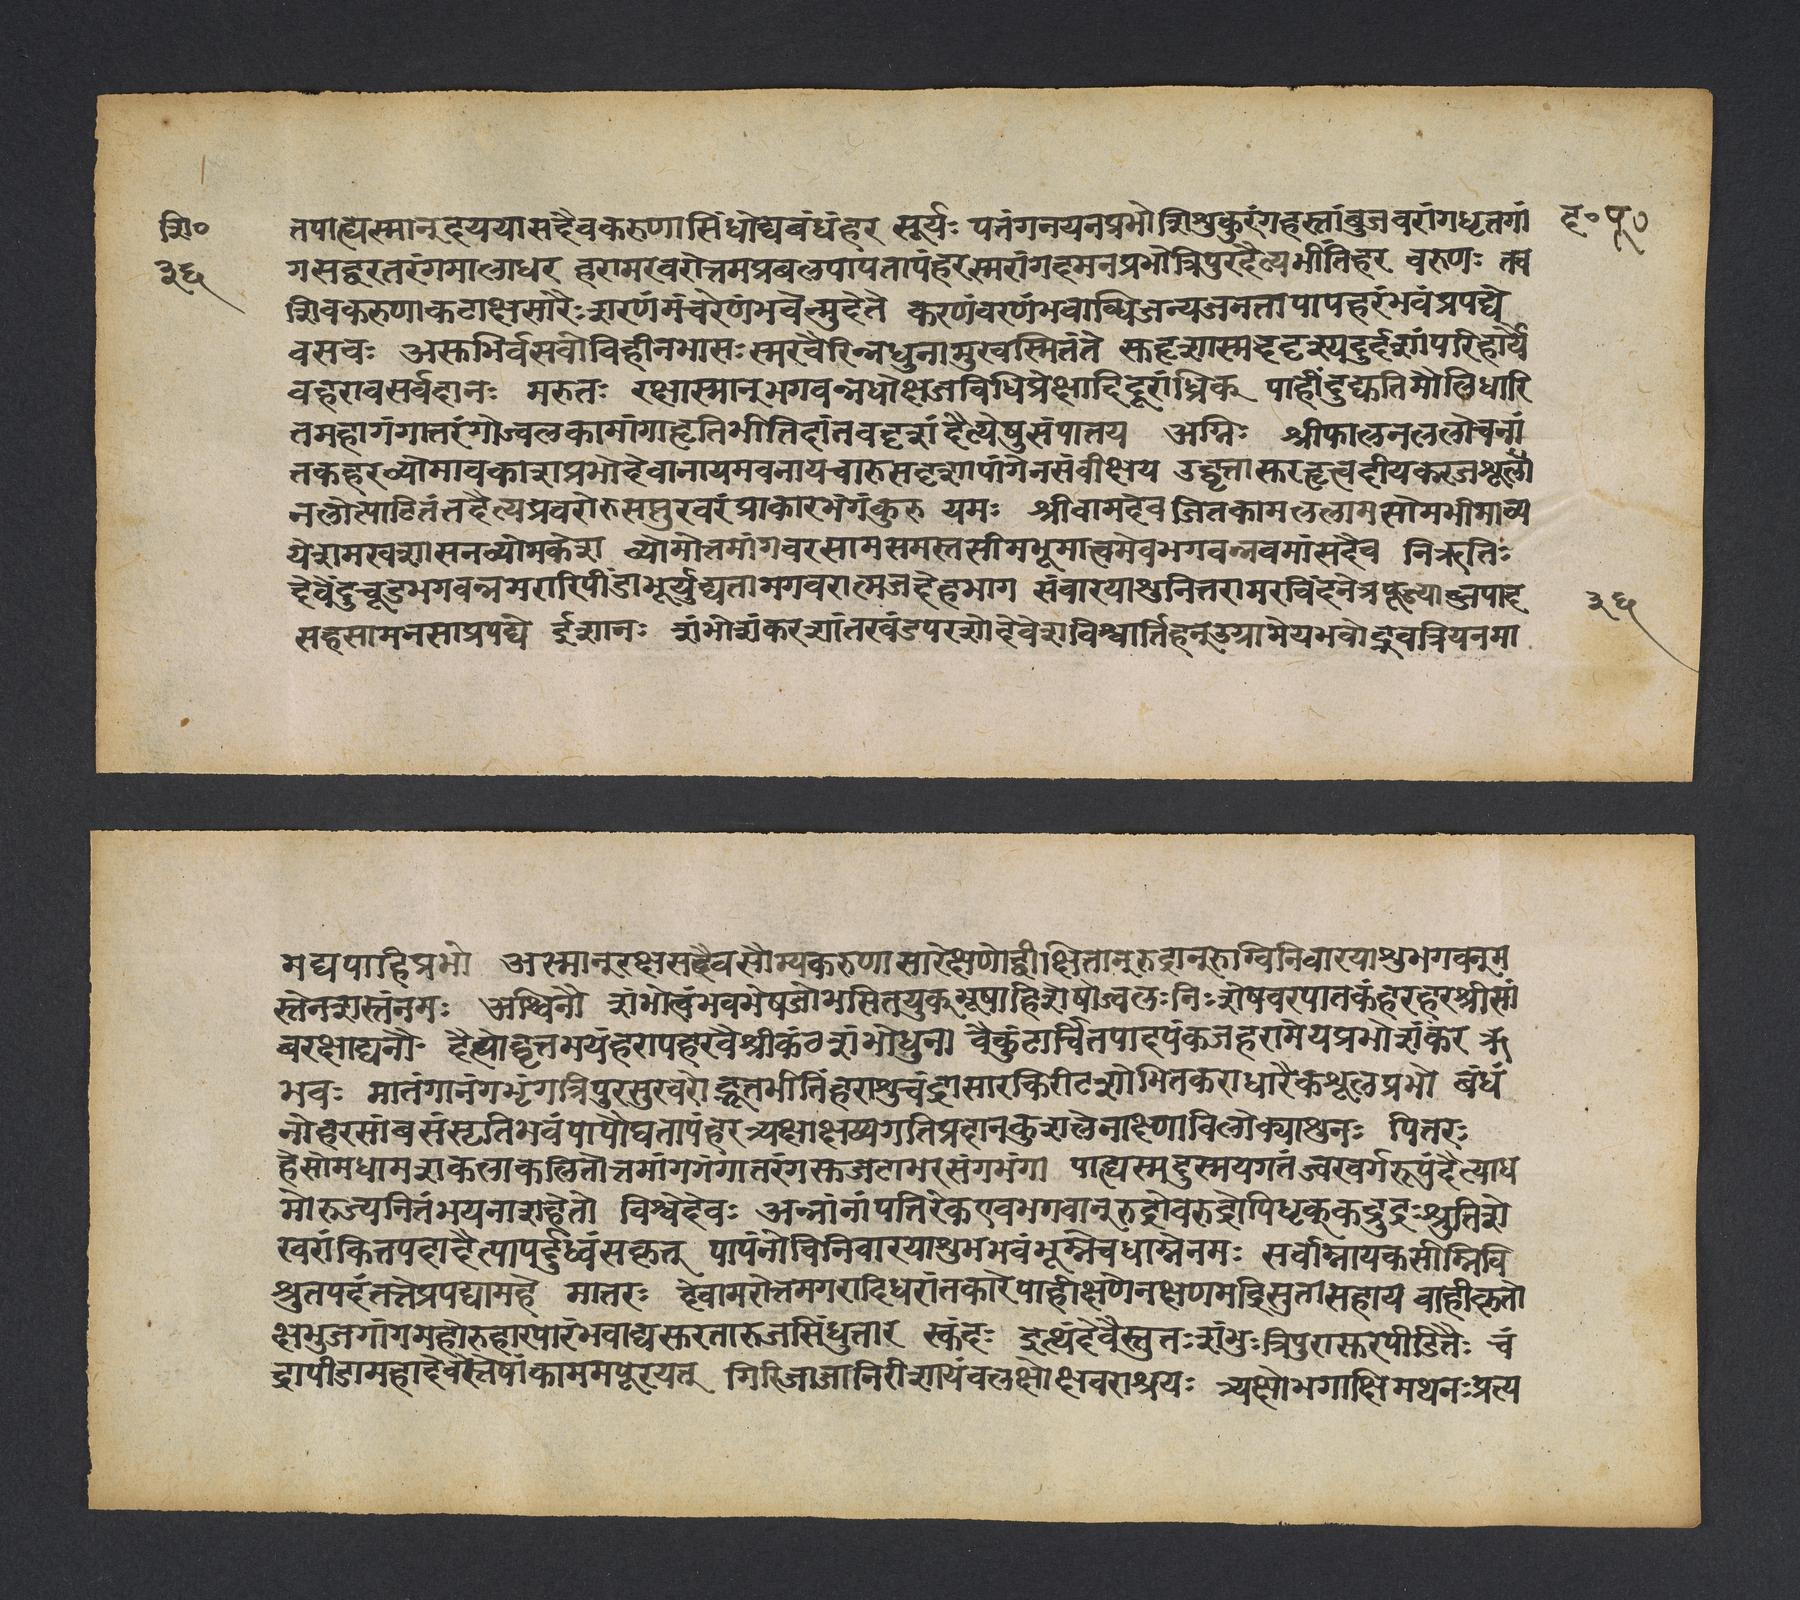 शि० तपाद्यस्मानुदययासदैवकरुणासिंधोद्यबंधंहर सूर्यः पतंगनयनप्रभोशिशुकुरंगहस्तांबुजवरांगधृतगां द०पू०
३६ गसद्वरतरंगमालाधर हरामरवरोत्तमप्रबलपापतापंहरस्मरांगदमनप्रभोत्रिपुरदैत्यभीतिंहर वरुणः तव
शिवकरुणाकटाक्षसारैःशरणंमंचरणंभवेन्मुदेते करणंवरणंभवाब्धिजन्यजनतापापहरंभवंप्रपद्ये
वसवः अस्तभिर्वसवोविहीनभासःस्मरवैरिन्नधुनामुखस्मितंते स्तदृशास्मददृश्यदुर्दशांपरिहार्यै
वहरावसर्वदानः मरुतः रक्षास्मान्भगवन्नधोक्षजविधिप्रेक्षादिदूरांध्रिक पाहींदुद्युतिमौलिधारि
तमहागंगातरंगोज्वलकामांगाहृतिभीतिदांतवदृशंदैत्येषुसंपातय अग्निः श्रीफालनललोचनां
तकहरव्योमावकाशप्रभोदेवानायमवनायचारुसदृशापांगेनसंवीक्षय उद्धृत्तास्तरहृत्त्वदीयकरजशूलौ
नलोत्पाटितंतद्दैत्यप्रवरोरुसप्तुरवरंप्राकारभंगंकुरु यमः श्रीवामदेवजितकामललामसोमभीमाव्य
येशमखशासनव्योमकेश व्योमोत्तमांगवरसामसमस्तसीमभूमात्वमेवभगवन्नवमांसदैव निऋतिः
देवेंदुचूडभगवन्नमरारिपीडाभूर्युद्यतामगवरात्मजदेहभाग संवारयाशुनितरामरविंदनेत्रपूज्याब्जपाद ३६
सहसामनसाप्रपद्ये ईशानः शंभोशंकरशांतखंडपरशोदेवेशविश्वार्तिहन्उग्रामेयभवोद्भवत्रियनमा
मद्यपाहिप्रभो अस्मान्रक्षसदैवसौम्यकरुणासारेक्षणोद्वीक्षितान्रुद्रान्रुग्विनिवारयाशुभगवन्म
स्तेनशस्तंनमः अश्विनौ शंभोत्वंभवभेषजोभसितयुक्भूषाहिशेषोज्वलःनिःशेषवरपातकंहरहरश्रीसां
बरक्षाद्यनौ दैत्योद्धृतभयंहरापहरवैश्रीकंठशंभोधुना वैकुंठार्चितपादपंकजहरामेयप्रभोशंकर ऋ
भवः मातंगानंगभृंगत्रिपुरसुरवरोद्भूतभीतिंहराशुचंद्रासारकिरीटशोभितकराधारैकशूलप्रभो बंधं
नोहरसांबसंसृतिभवंपापौघतापंहर त्र्यक्षाक्षय्यगतिप्रदानकुशलेनाक्ष्णाविलोक्याशुनः पितरः
हेसोमधामशकलाकलितोत्तमांगगंगातरंगस्तजटाभरसंगभंगा पाह्यस्मदुस्मयगतंज्वरवर्गरूपंदैत्याध
मोरुज्यनितंभयनाशहेतो विश्वेदेवः अन्नानांपतिरेकएवभगवान्रुद्रोवरुद्रोपिधृक्कद्रुद्रःश्रुतिशे
खरांकितपदादैत्यापुर्द्दुर्ध्वंसकृत् पापंनोविनिवारयाशुभभवंभूम्नेचधाम्नेनमः सर्वाम्नायकसीम्निवि
श्रुतपदंतत्तेप्रपद्यामहे मातरः देवामरोत्तमगरादिधरांतकारेपाहीक्षणेनक्षणमद्रिसुतासहाय वाहीकृतो
क्षभुजगांगमहोरुहारपारंभवाद्यस्तरतारुजसिंधुतार स्कंदः इत्थंदेवैस्तुतःशंभुःत्रिपुरास्तरपीडितैः चं
द्रापीडामहादेवस्तेषांकाममपूरयत् गिरिजाजानिरीशायंवलक्षोक्षवराश्रयः त्र्यक्षोभगाक्षिमथनःप्रत्य